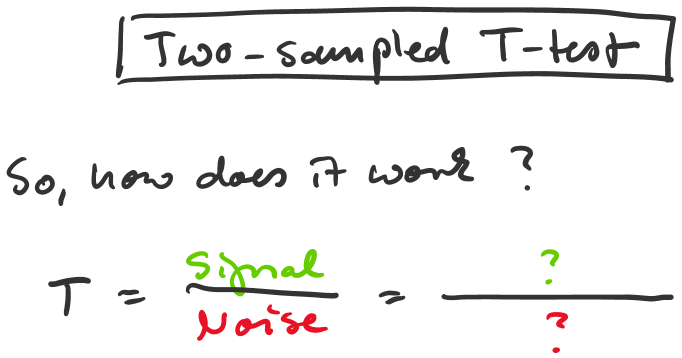 Two-sampled T-test
So, how does it work ?
T = Signal / Noise = ? / ?